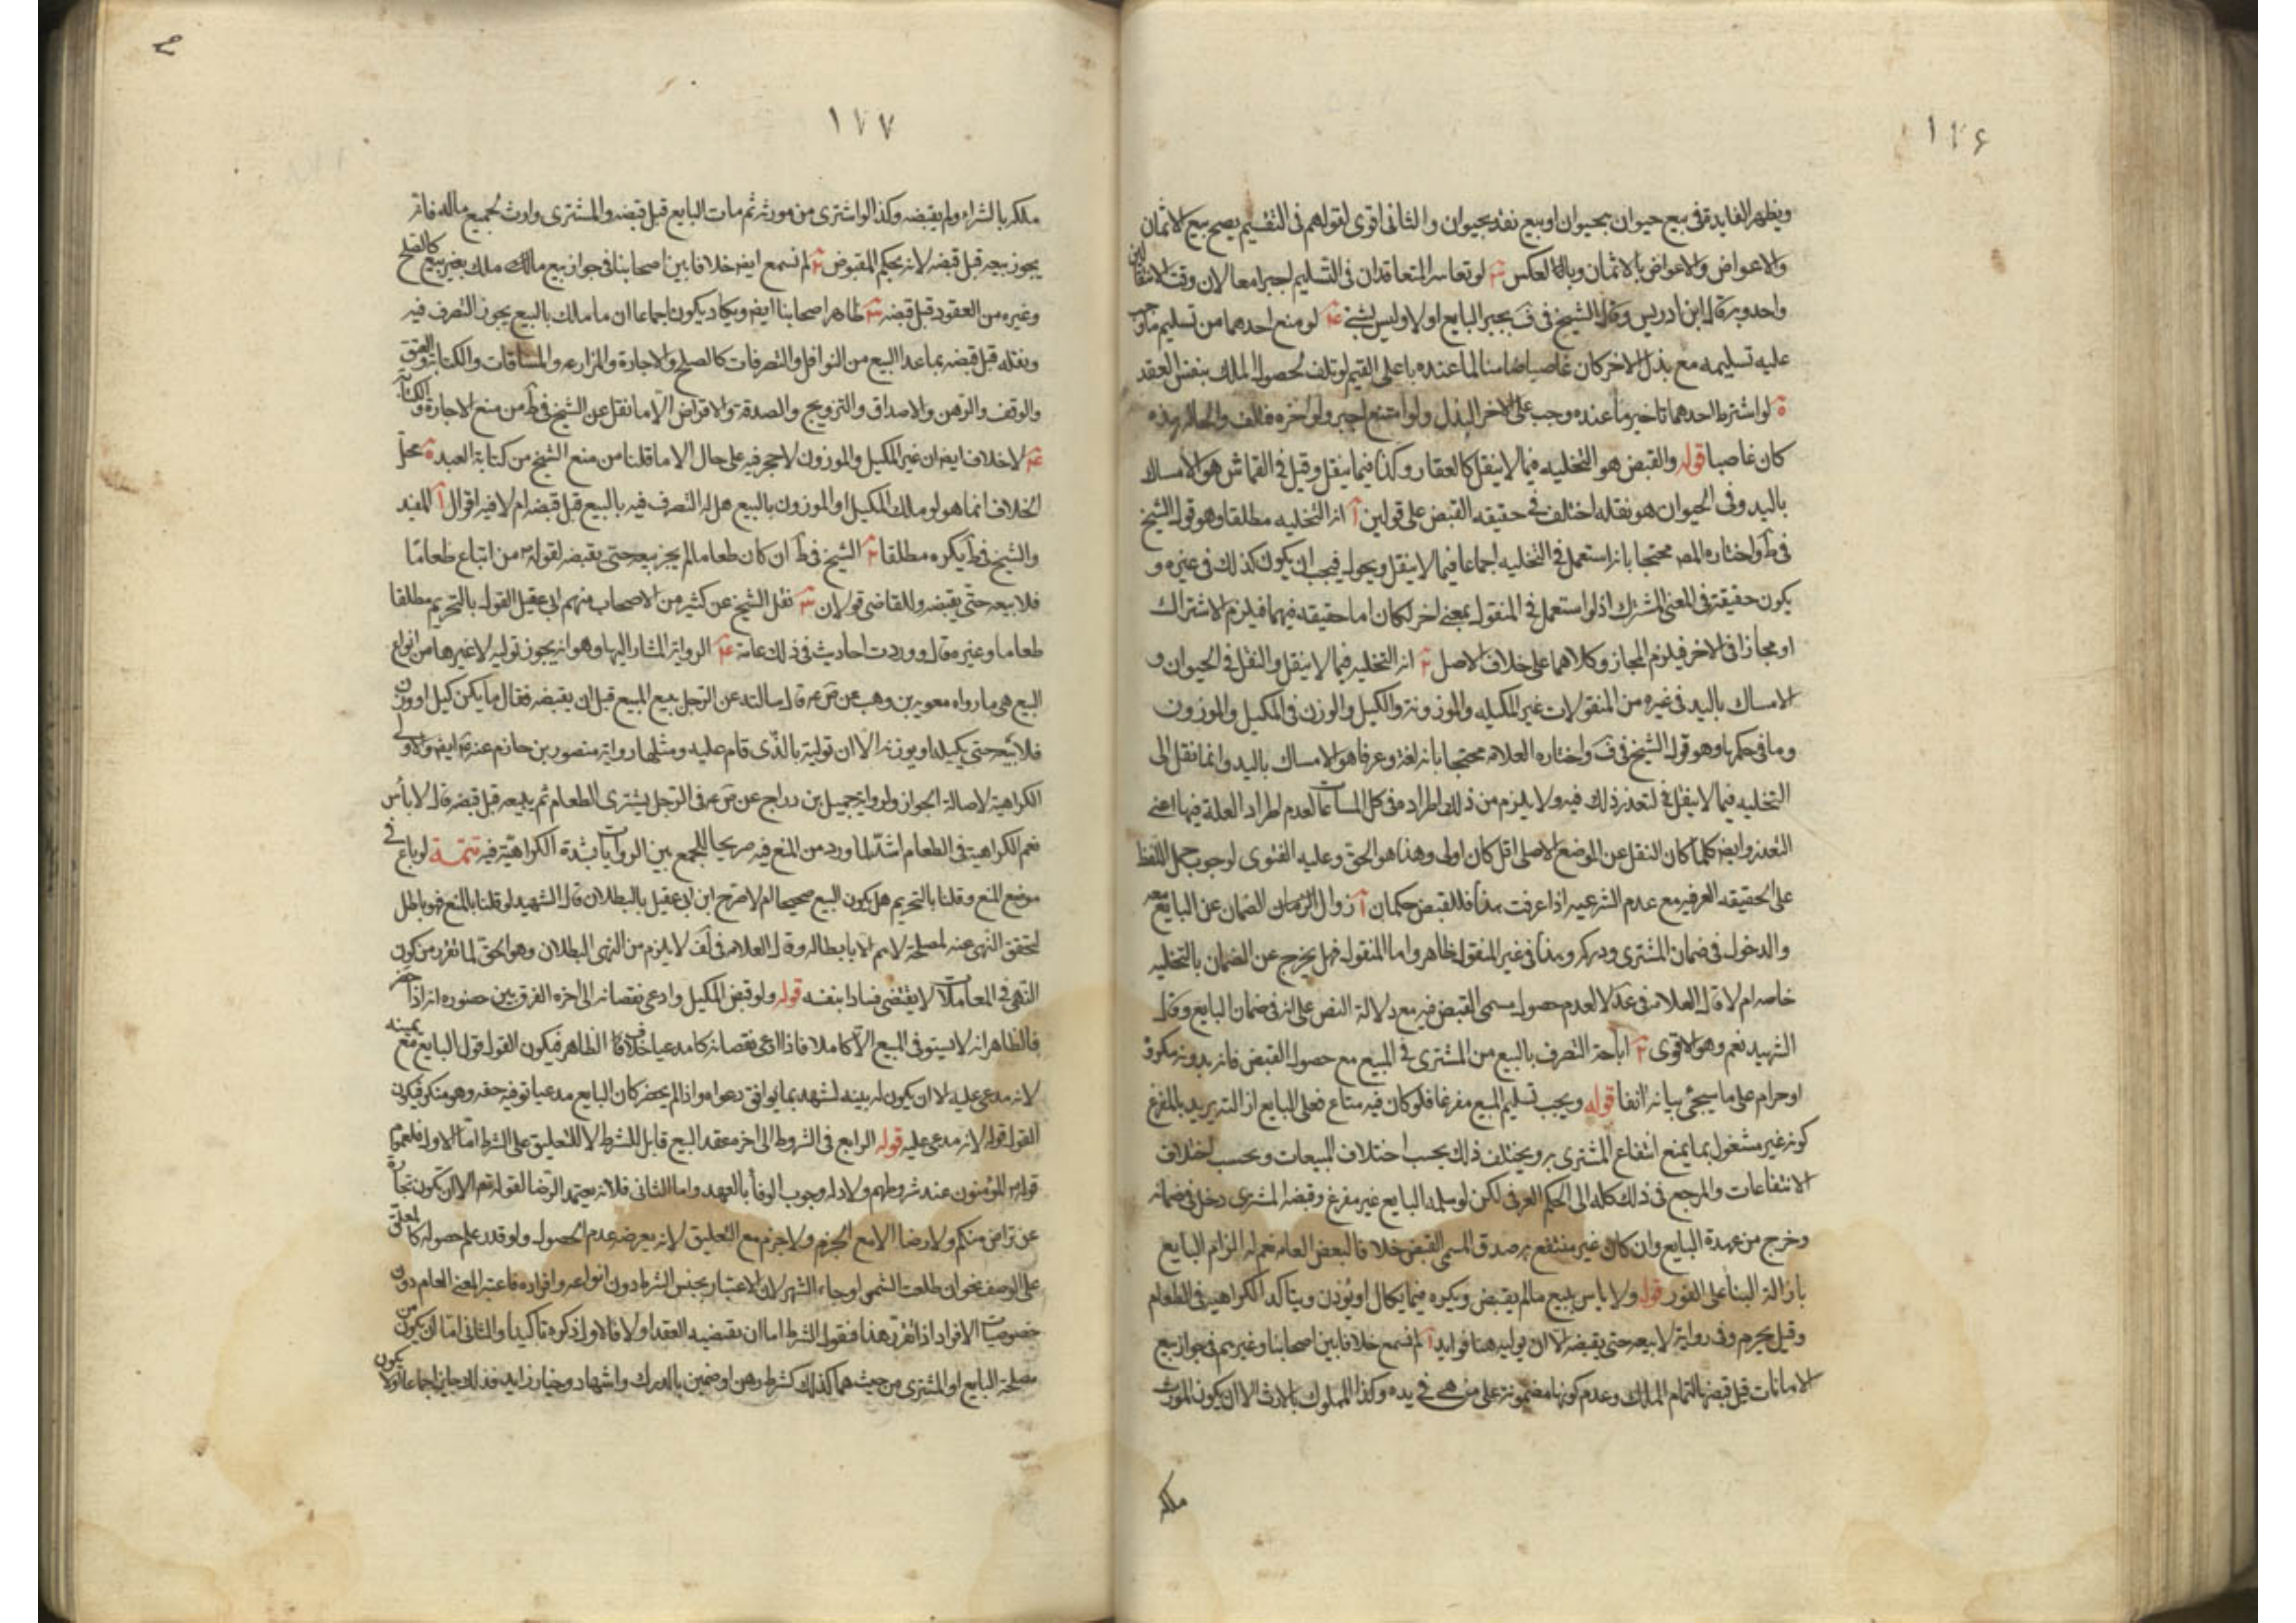 ١٧۶
ويظهر الفايدة في بيع حيوان بحيوان او بيع نقد بحيوان والثاني اقوى لقولهم في التقسيم يصح بيع الاثمان
والاعواض والاعواض بالاثمان وبالعكس ٣ لو تعاسر المتعاقدان في التسليم اجبرا معا لان وقت الانتقالين
واحد وبه قال ابن ادريس وقال الشيخ في ف يجبر البايع اولا وليس بشئ ۴ لو منع احدهما من تسليم ما وجب
عليه تسليمه مع بذل الاخر كان غاصبا ضامنا لما عنده باعلى القيم لو تلف لحصول الملك بنفس العقد
ة لو اشترط احدهما تاخير ما عنده وجب على الاخر البذل ولو امتنع اجبر ولو اخره فالف والحال هذه
كان غاصبا قوله والقبض هو التخليه فيما لا ينقل كالعقار وكذا فيما ينقل وقيل في القماش هو الامساك
باليد وفي الحيوان هو نقله اختلف في حقيقه القبض على قولين آ انه التخليه مطلقا وهو قول الشيخ
في ط واختاره المص محتجا بانه استعمل في التخليه اجماعا فيما لا ينقل ويحول فيجب ان يكون كذلك في غيره و
يكون حقيقة في المعنى المشترك اذ لو استعمل في المنقول بمعنى اخر لكان اما حقيقه فيهما فيلزم الاشتراك
او مجازا في الاخر فيلزم المجاز وكلاهما على خلاف الاصل ٢ انه التخليه فيما لا ينقل والنقل في الحيوان و
الامساك باليد في غيره من المنقولات غير المكيله والموزونة والكيل والوزن في المكيل والموزون
وما في حكمها وهو قول الشيخ في ف واختاره العلامه محتجا بانه لغة وعرفا هو الامساك باليد وانما نقل الى
التخليه فيما لا ينقل لتعذر ذلك فيه ولا يلزم من ذلك اطراده في كل المسمات لعدم اطراد العلة فيها اعني
التعذر وايضا كلما كان النقل عن الموضع الاصلي اقل كان اولى وهذا هو الحق وعليه الفتوى لوجوب حمل اللفظ
على الحقيقه العرفيه مع عدم الشرعيه اذا عرفت هذا فللقبض حكمان آ زوال الضمان عن البايع
والدخول في ضمان المشتري ودركه وهذا في غير المنقول ظاهر واما المنقول فهل يخرج عن الضمان بالتخليه
خاصه ام لا قال العلامه في عد لا لعدم حصول مسمى القبض فيه مع دلالة النص على انه في ضمان البايع وقال
الشهيد نعم وهو الاقوى ٢ اباحة التصرف بالبيع من المشتري في المبيع مع حصول القبض فانه بدونه مكروه
او حرام على ما سيجئ بيانه انفا قوله ويجب تسليم المبيع مفرغا فلو كان فيه متاع فعلى البايع ازالته يريد بالمفرغ
كونه غير مشغول بما يمنع انتفاع المشتري به ويختلف ذلك بحسب اختلاف المبيعات وبحسب اختلاف
الانتفاعات والمرجع في ذلك كله الى الحكم العرفي لكن لو سلمه البايع غير مفرغ وقبضه المشتري دخل في ضمانه
وخرج من عهدة البايع وان كان غير منتفع به صدق المسمى القبض خلافا لبعض العامه نعم له الزام البايع
بازالة البنا على الفور قوله ولا باس ببيع مالم يقبض ويكره فيما يكال او يوزن ويتأكد الكراهيه في الطعام
وقيل يحرم وفي رواية لا يبيعه حتى يقبضه الا ان يوليه هنا فوايد آ لم نسمع خلافا بين اصحابنا وغيرهم في جواز بيع
الامانات قبل قبضها لتمام الملك وعدم كونها مضمونة على من هي في يده وكذا المملوك بالارث الا ان يكون المورث
ملكه
١٧٧
ملكه بالشراء ولم يقبضه وكذا لو اشترى من مورثه ثم مات البايع قبل قبضه والمشتري وارث لجميع ماله فانه
يجوز بيعه قبل قبضه لانه بحكم المقبوض ٢ لم نسمع ايضا خلافا بين اصحابنا في جواز بيع مالك ملك بغير بيع كالصلح
وغيره من العقود قبل قبضه ٣ ظاهر اصحابنا ايضا ويكاد يكون اجماعا ان ما ملك بالبيع يجوز التصرف فيه
ونقله قبل قبضه بما عدا البيع من النواقل والتصرفات كالصلح والاجارة والمزارعه والمساقات والكتابة والعتق
والوقف والرهن والاصداق والتزويج والصدقة والاقراض الا ما نقل عن الشيخ في ط من منع الاجارة والكتابة
۴ لا خلاف ايضا ان غير المكيل والموزون لا حجر فيه على حال الا ما قلنا من منع الشيخ من كتابة العبد ة محل
الخلاف انما هو لو ملك المكيل او الموزون بالبيع هل له التصرف فيه بالبيع قبل قبضه ام لا فيه اقوال آ المفيد
والشيخ في يكره مطلقا ٢ الشيخ في ط ان كان طعاما لم يجز بيعه حتى يقبضه لقوله من ابتاع طعاما
فلا يبيعه حتى يقبضه وللقاضي قولان ٣ نقل الشيخ عن كثير من الاصحاب منهم ابن ابي عقيل القول بالتحريم مطلقا
طعاما وغيره قال ووردت احاديث في ذلك عامة ۴ الرواية المشار اليها وهو انه يجوز توليه لا غيرها من انواع
البيع هي ما رواه معويه بن وهب عن ص ع قال سالته عن الرجل يبيع المبيع قبل ان يقبضه فقال ما يكن كيل او وزن
فلا تبيعه حتى يكيله او يوزنه الا ان توليه بالذي قام عليه ومثلها رواية منصور بن حازم عنه ع ايضا والاولى
الكراهية لاصالة الجواز ولرواية جميل بن دراج عن ص ع في الرجل يشتري الطعام ثم يبيعه قبل قبضه قال لا بأس
نعم الكراهية في الطعام اشد لما ورد من المنع فيه صريحا للجمع بين الروايات بشدة الكراهية فيه تتمة لو باع في
موضع المنع وقلنا بالتحريم هل يكون البيع صحيحا ام لا صرح ابن ابي عقيل بالبطلان قال الشهيد لو قلنا بالمنع فهو باطل
لتحقق النهي عنه لمصلحة لا يتم الا بابطاله وقال العلامه في لف لا يلزم من النهي البطلان وهو الحق لما تقرر من كون
النهي في المعاملات لا يقتضي فسادا بنفسه قوله ولو قبض المكيل وادعى نقصانه الى اخره الفرق بين حضوره انه اذا حضر
فالظاهر انه لا يستوفي المبيع الا كاملا فاذا ادعى نقصانه كان مدعيا خلاف الظاهر فيكون القول قول البايع مع يمينه
لانه مدعى عليه الا ان يكون له بينه تشهد بما يوافق دعواه واذا لم يحضر كان البايع مدعيا توفيه حقه وهو منكر فيكون
القول قوله لانه مدعى عليه قوله الرابع في الشروط الى اخره عقد البيع قابل للشرط لا للتعليق على الشرط اما الاول فلعموم
قوله المؤمنون عند شروطهم ولادله وجوب الوفا بالعهد واما الثاني فلانه يعتمد الرضا لقوله تعم الا ان تكون تجارة
عن تراض منكم ولا رضا الا مع الجزم ولا جزم مع التعليق لانه بعرضه عدم الحصول ولو قدر علم حصوله كالمعلق
على الوصف نحو ان طلعت الشمس او جاء الشهر لان الاعتبار بجنس الشرط دون انواعه وافراده فاعتبر المعنى العام دون
خصوصيات الافراد اذا تقرر هذا فنقول الشرط اما ان يقتضيه العقد او لا فالاول ذكره تأكيدا والثاني اما ان يكون من
مصلحة البايع او المشتري من حيث هما كذلك كشرط رهن او ضمين بالدرك واشهاد وخيار زايد فذلك جايز اجماعا او لا يكون